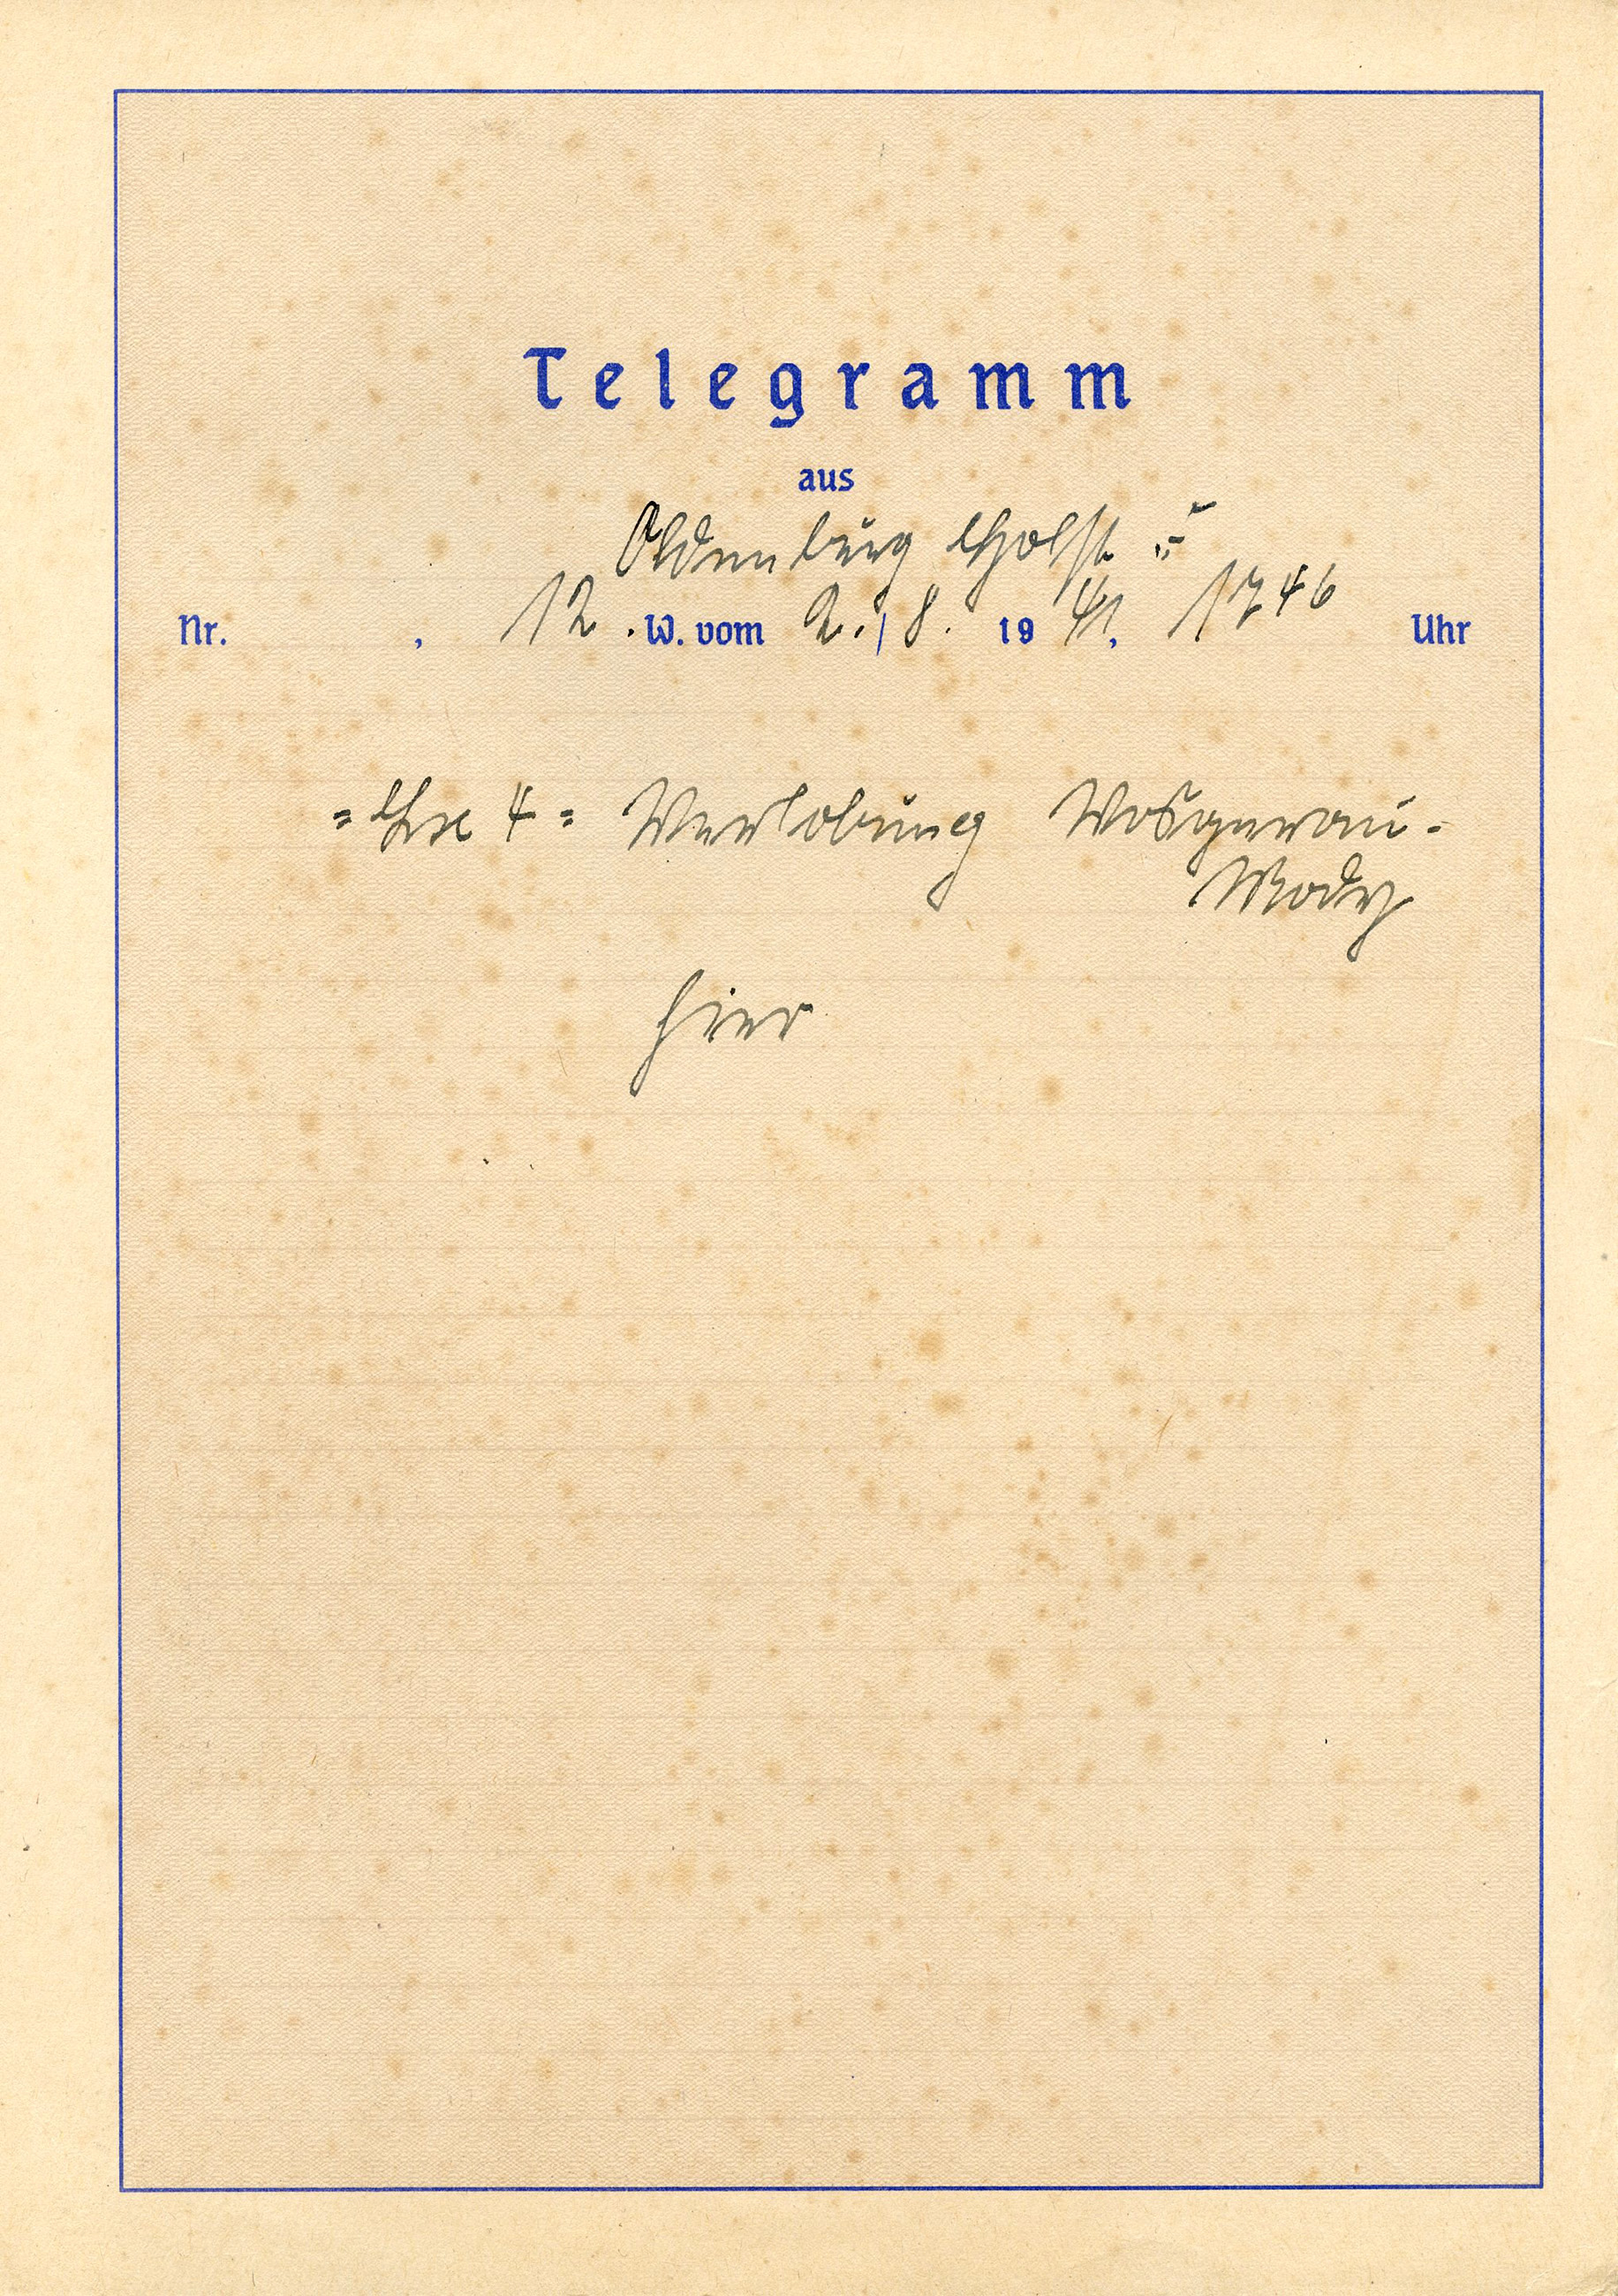 Telegramm
aus
Oldenburg Holst =
Nr. , 12. W. vom 2. / 8. 19 41, 17 46 Uhr
= Lx 4 = Verlobung Vosgerau-
hier